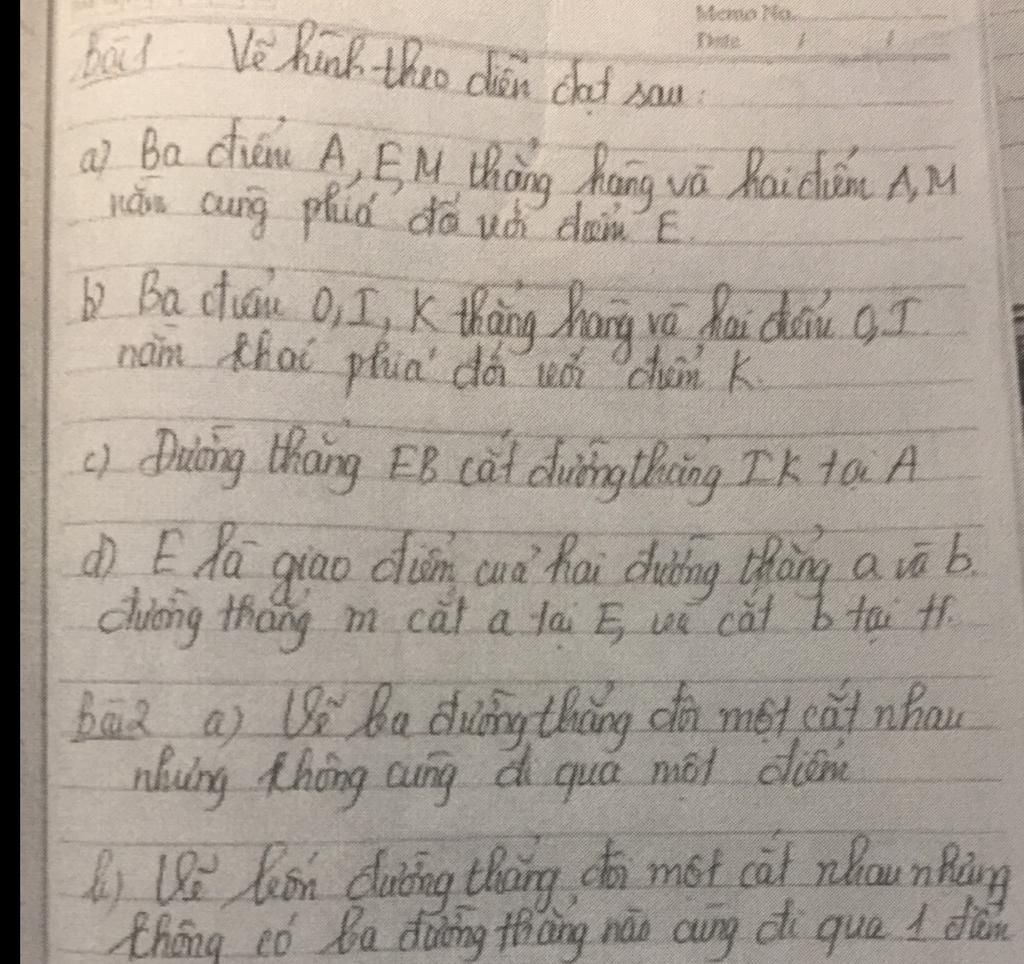 Memo No.
Date / /
bài 1 Vẽ hình theo diễn đạt sau:
a) Ba điểm A, E, M thẳng hàng và hai điểm A, M
nằm cùng phía đối với điểm E.
b) Ba điểm O, I, K thẳng hàng và hai điểm O, I
nằm khác phía đối với điểm K.
c) Đường thẳng EB cắt đường thẳng IK tại A
d) E là giao điểm của hai đường thẳng a và b.
đường thẳng m cắt a tại E, và cắt b tại H.
bài 2 a) Vẽ ba đường thẳng đôi một cắt nhau
nhưng không cùng đi qua một điểm
b) Vẽ bốn đường thẳng đôi một cắt nhau nhưng
không có ba đường thẳng nào cùng đi qua 1 điểm